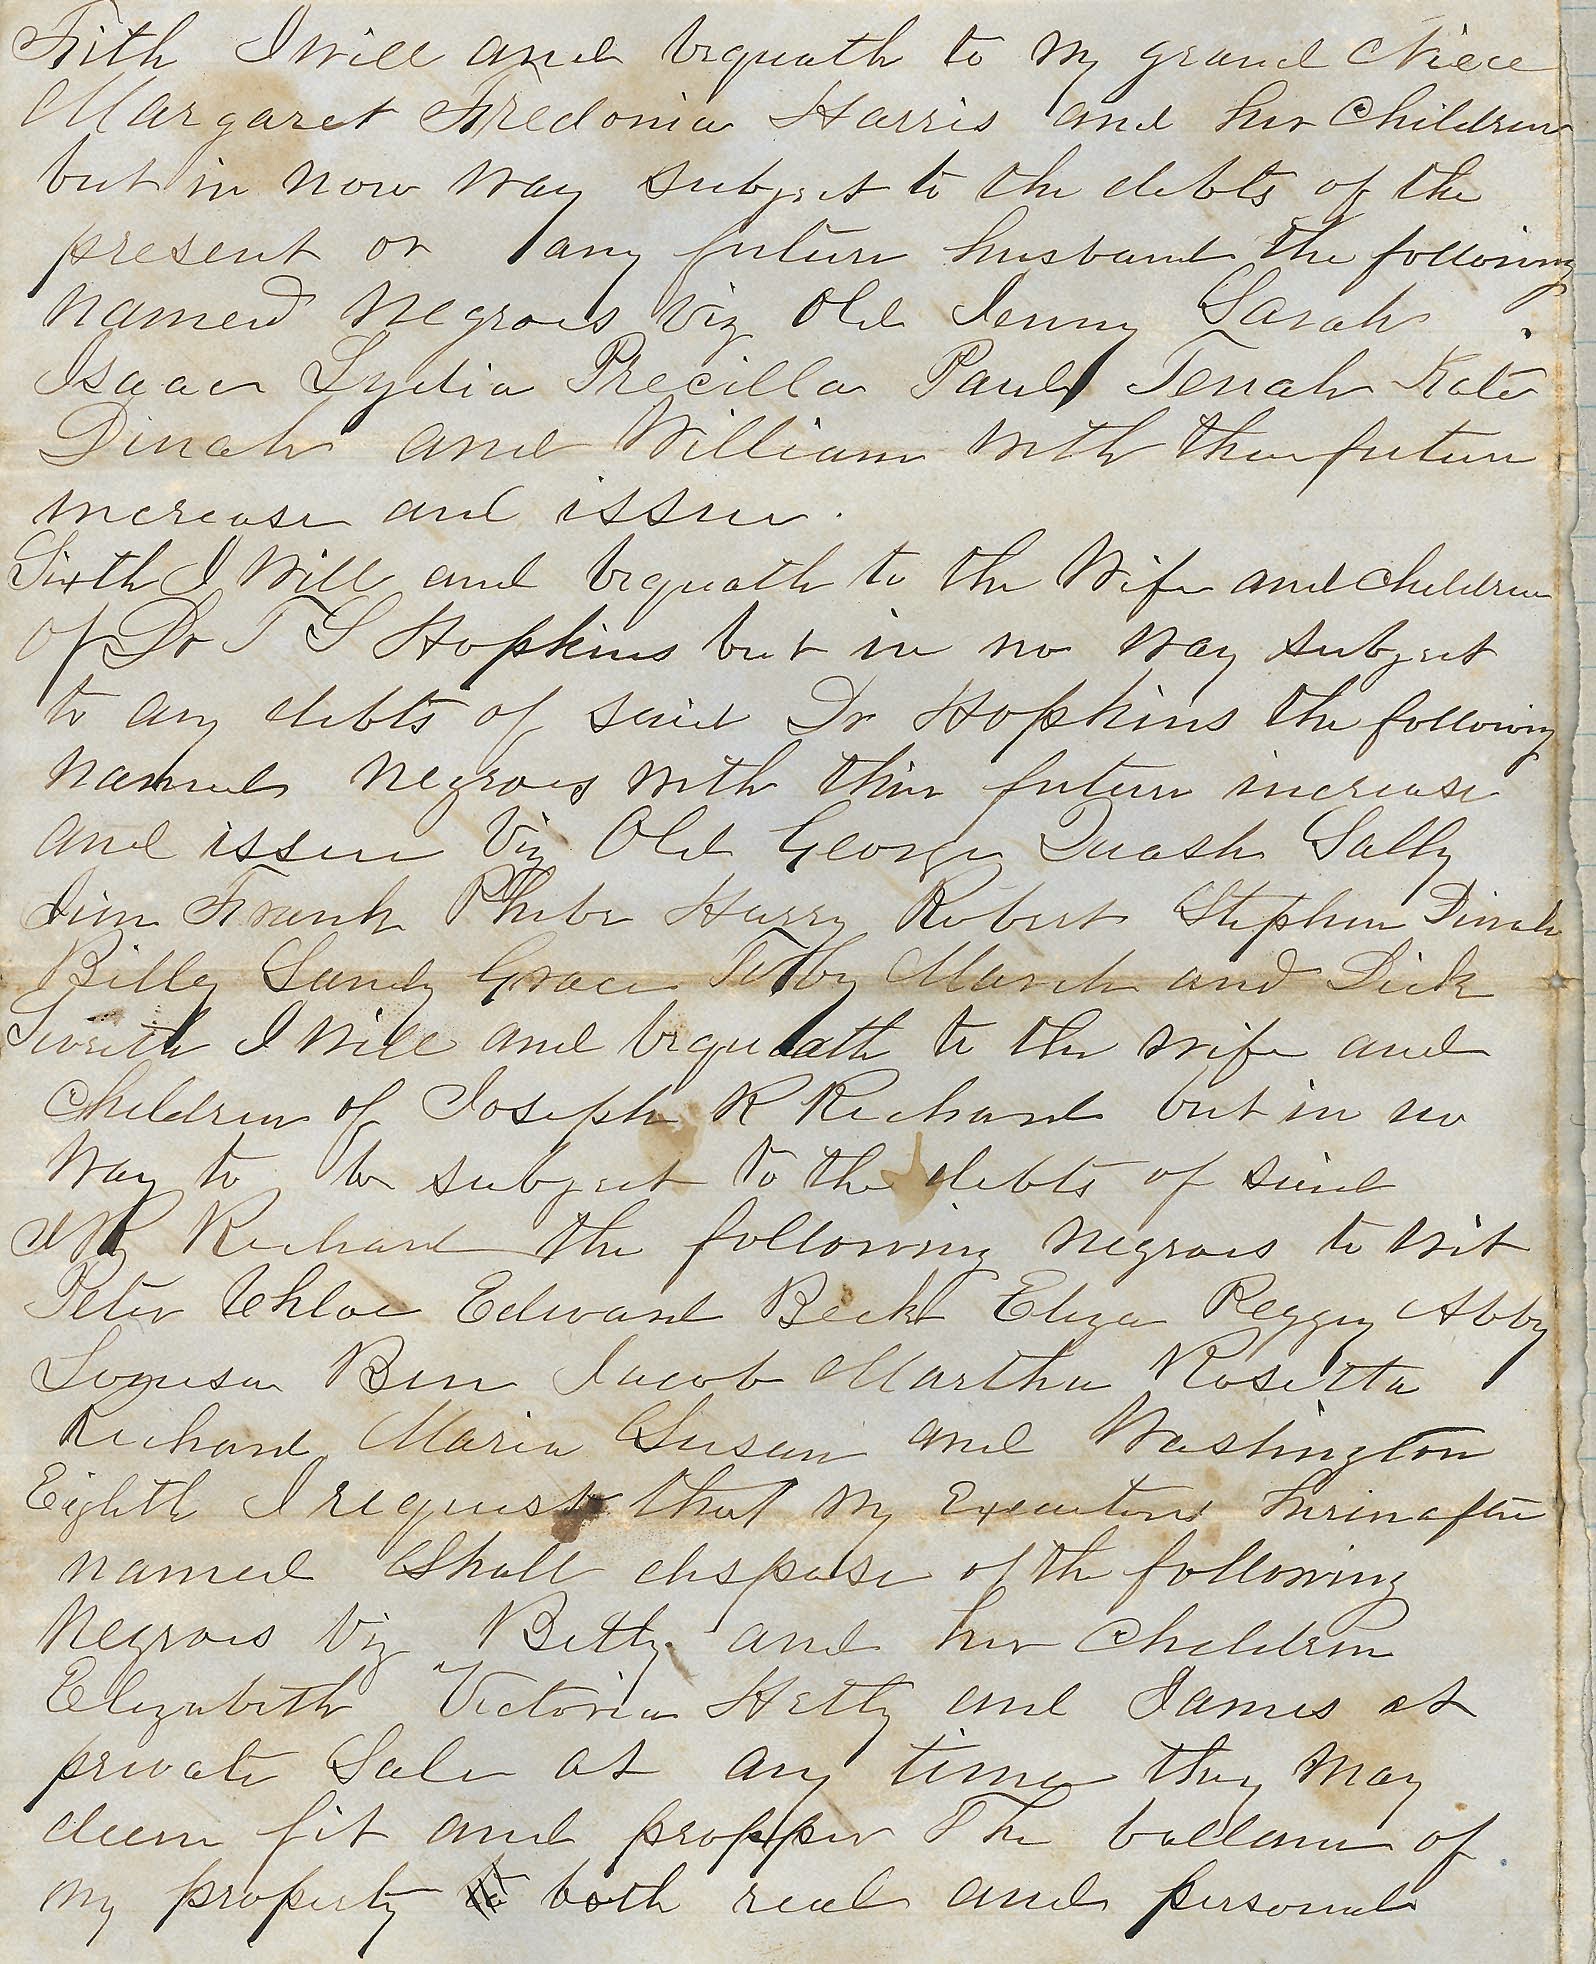 Fith I will and bequath to my grand Niece
Margaret Fredonia Harris and her Children
but in now way subject to the debts of the
present or any future husband the following
named negroes viz Old Jenny Sarah
Isaac Lydia Precilla Paul Tenah Kate
Dinah and William with their future
increase and issue.
Sixth I Will and bequath to the Wife and children
of Dr T S Hopkins but in no way subject
to any debts of said Dr Hopkins the following
named negroes with their future increase
and issue Viz Old George Quash Sally
Jim Frank Phebe Harry Robert Stephen Dinah
Billy Sandy Grace Toby March and Dick
I Will and bequeath to the wife and
Children of Joseph R Richard but in no
way to be subject to the debts of said
J R Richard the following negroes to wit
Peter Chloe Edward Beck Eliza Peggy Abby
Louisa Ben Jacob Martha Rosetta
Richard Maria Susan and Washington
Eighth I request that my Executors herinafter
named Shall dispose of the following
Negroes Viz Betty and her Children
Elizabeth Victoria Hetty and James at
private Sale at any time they may
deem fit and propper The ballance of
my property both real and personal